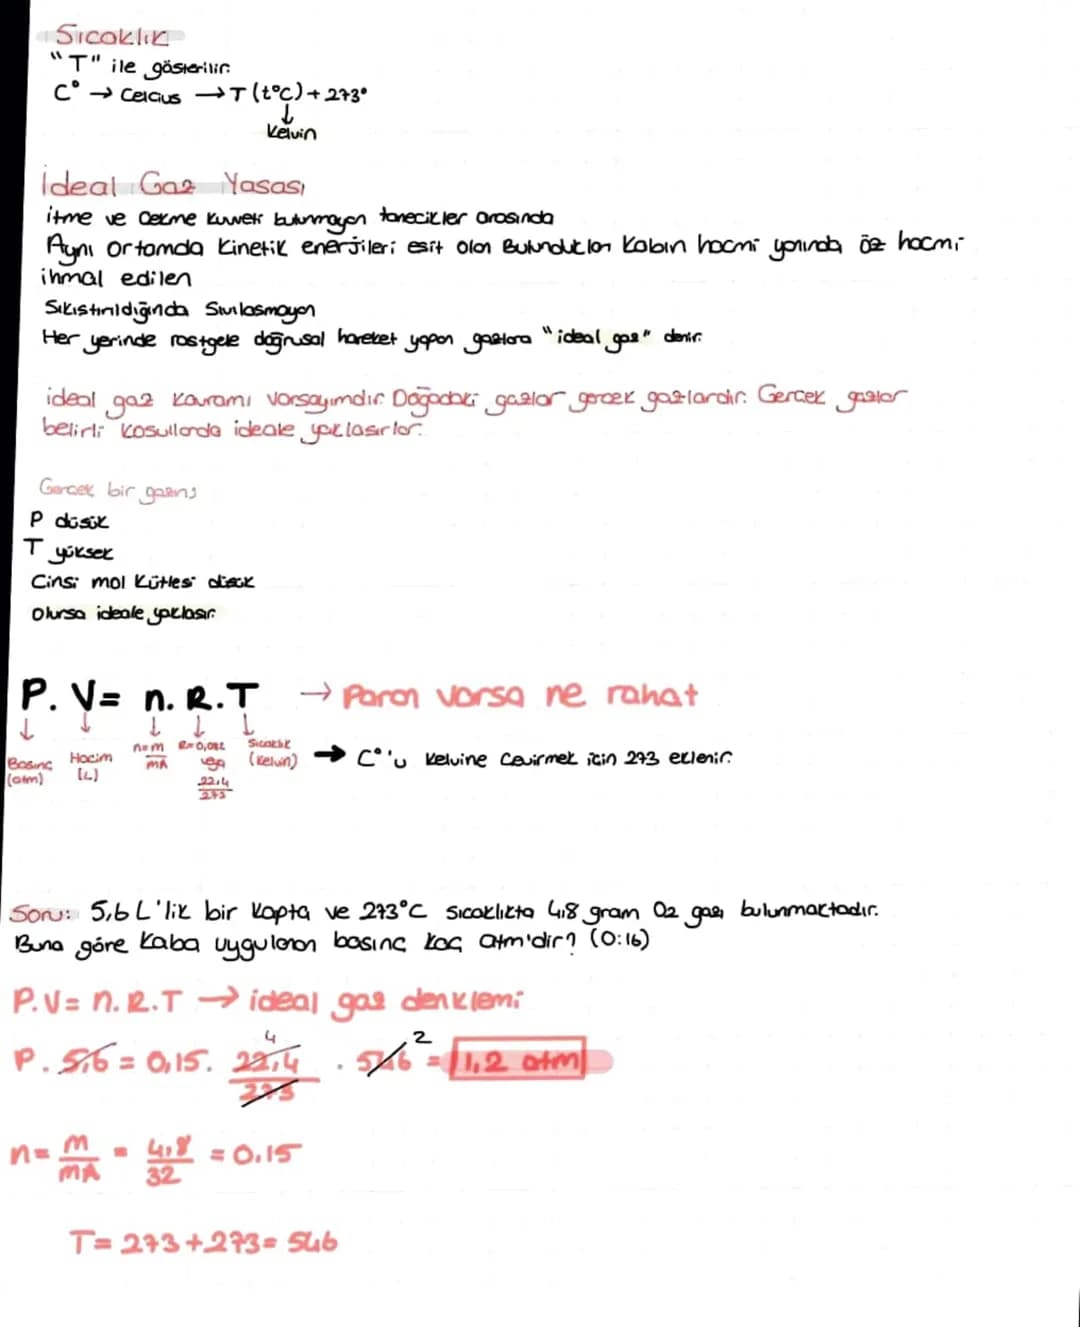 Sıcaklık
"T" ile gösterilir.
C° → Celcius → T (t°C) + 273°
↓
Kelvin
İdeal Gaz Yasası
itme ve Çekme kuvveti bulunmayan tanecikler arasında
Aynı ortamda kinetik enerjileri eşit olan Bulundukları kabın hacmi yanında öz hacmi
ihmal edilen
Sıkıştırıldığında Sıvılaşmayan
Her yerinde rastgele doğrusal hareket yapan gazlara "ideal gaz" denir.
ideal gaz kavramı varsayımdır. Doğadaki gazlar gerçek gazlardır. Gerçek gazlar
belirli koşullarda ideale yaklaşırlar.
Gerçek bir gazın;
P düşük
T yüksek
Cinsi mol kütlesi düşük
Olursa ideale yaklaşır.
P. V = n. R. T → Paran varsa ne rahat
↓ ↓ ↓ ↓ ↓
Basınç (atm) Hacim (L) n=m/MA R=0,082 veya 22,4/273 Sıcaklık (Kelvin) → C°'u Kelvine Çevirmek için 273 eklenir.
Soru: 5,6 L'lik bir kapta ve 273°C sıcaklıkta 4,8 gram O2 gazı bulunmaktadır.
Buna göre kaba uygulanan basınç kaç atm'dir? (O:16)
P.V = n. R.T → ideal gaz denklemi
4 2
P. 5,6 = 0,15. 22,4/273 . 546 = 1,2 atm
n = m/MA = 4,8/32 = 0.15
T = 273 + 273 = 546